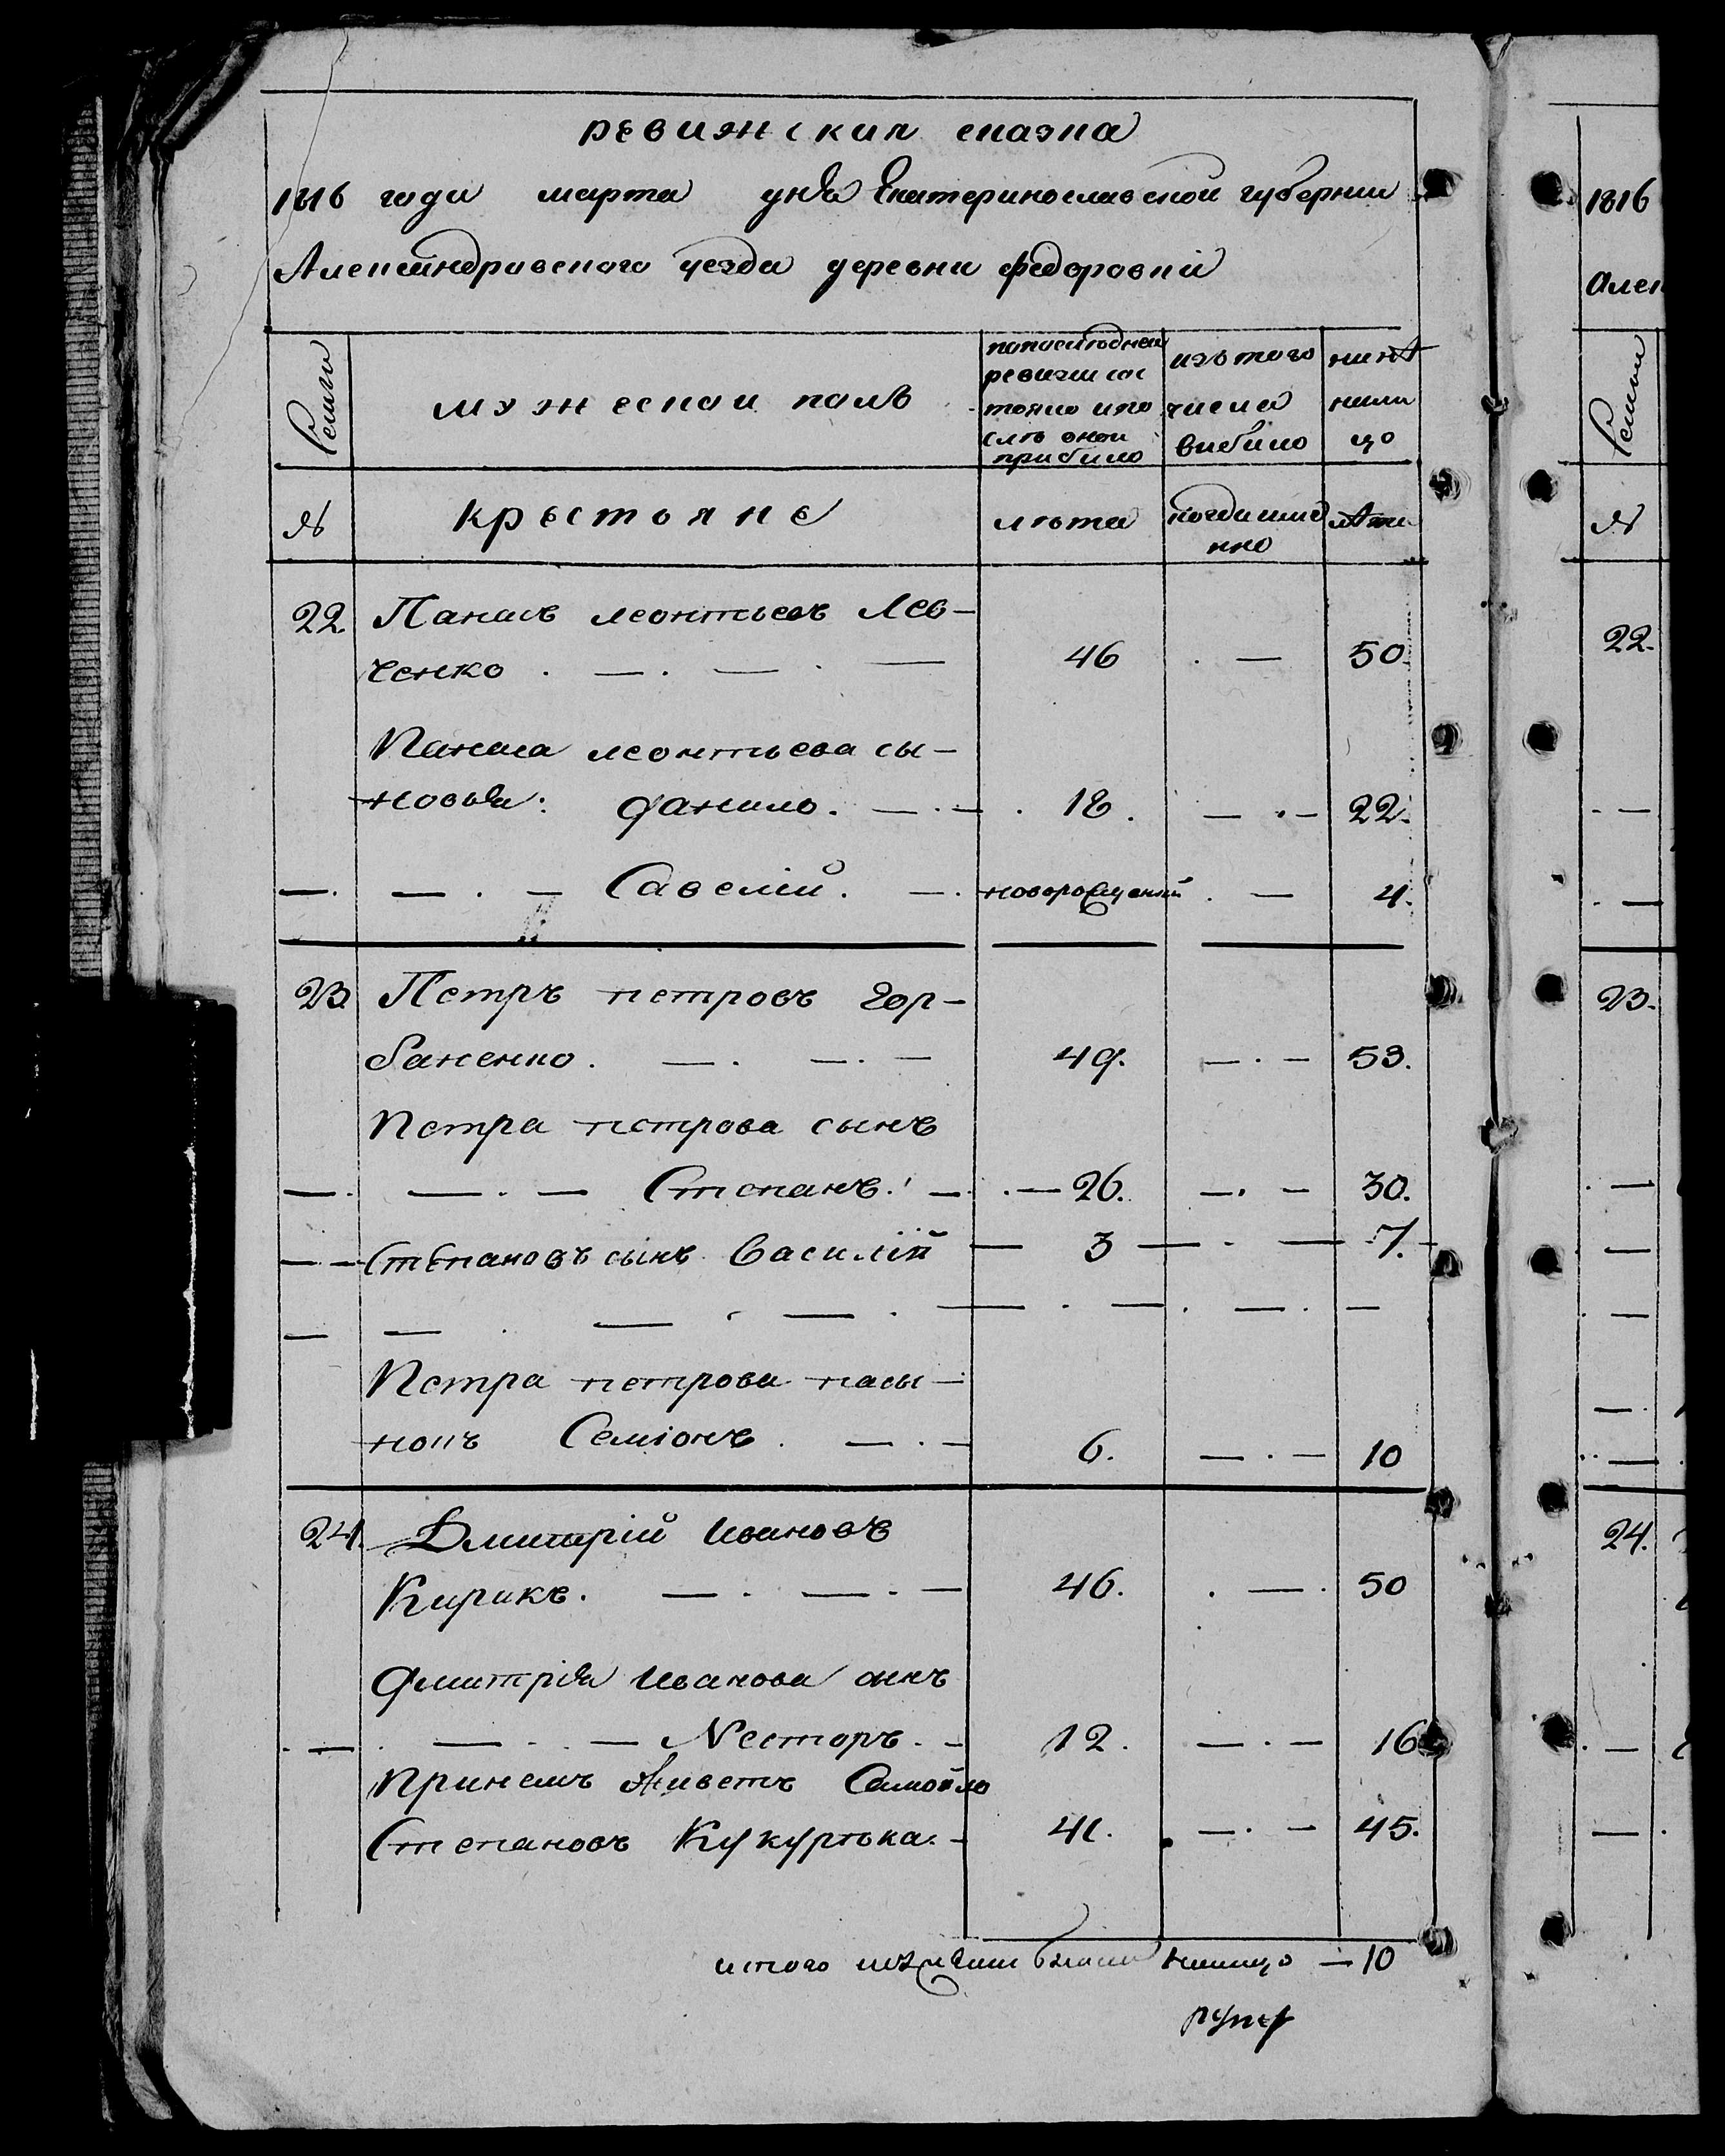 ревижская сказка
1816 года марта дня Екатеринославской губернии
Александровского уезда деревни федоровки
Семьи
мужеской полъ
попоследней ревизии сос тояло и по слѣ оной прибыло
изъ того числа выбыло
нынѣ налицо
№
крестояне
лѣта
когда имянно
лѣта
22. Панасъ леонтьевъ Лев-
ченко . — . — . — 46 . — 50
Панаса леонтьева сы-
новья: данило. — . — . 18. — . — 22.
— . — . — Савелiй. — . новорожденый . — 4.
23. Петръ петровъ Гор-
баненко. — . — . — 49. — . — 53.
Петра петрова сынъ
— . — . — Степанъ. — . — 26. — . — 30.
— — Степановъ сынъ Василiй — 3 — . — 7.
Петра петрова пасы-
нокъ Семiонъ . — . — 6. — . — 10
24. Дмитрiй Ивановъ
Кирикъ. — . — . — 46. . — . 50
Дмитрiя Иванова сынъ
. — . — . . — Несторъ. — 12. — . — 16
Принемъ живетъ Самойло
Степановъ Кукурѣка. — 41. — . — 45.
итого мужеска налицо — 10
1816
Алек
Семьи
№
22.
23.
24.